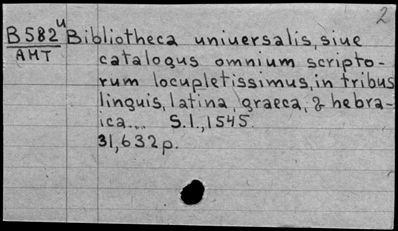 2
B582u Bibliotheca uniuersalis, siue
AMT catalogus omnium scripto-
rum locupletissimus, in tribus
linguis, latina, graeca, & hebra-
ica... S.l., 1545.
31,632p.